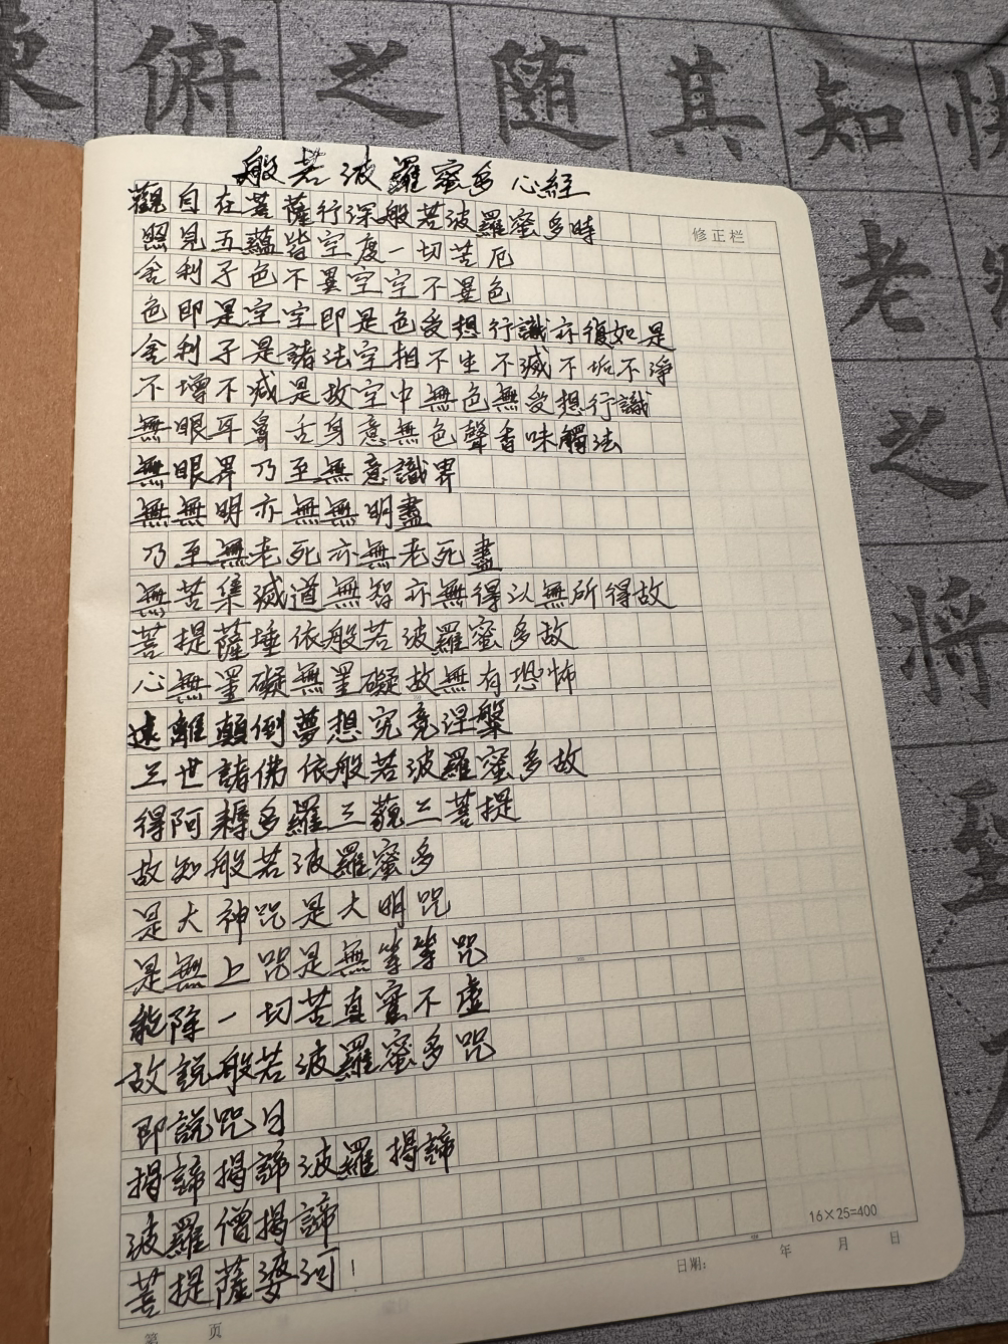 俯之随其知
老
之
将
至
般若波羅蜜多心經
觀自在菩薩行深般若波羅蜜多時
照見五蘊皆空度一切苦厄
舍利子色不異空空不異色
色即是空空即是色受想行識亦復如是
舍利子是諸法空相不生不滅不垢不淨
不增不減是故空中無色無受想行識
無眼耳鼻舌身意無色聲香味觸法
無眼界乃至無意識界
無無明亦無無明盡
乃至無老死亦無老死盡
無苦集滅道無智亦無得以無所得故
菩提薩埵依般若波羅蜜多故
心無罣礙無罣礙故無有恐怖
遠離顛倒夢想究竟涅槃
三世諸佛依般若波羅蜜多故
得阿耨多羅三藐三菩提
故知般若波羅蜜多
是大神咒是大明咒
是無上咒是無等等咒
能除一切苦真實不虛
故說般若波羅蜜多咒
即說咒曰
揭諦揭諦波羅揭諦
波羅僧揭諦
菩提薩婆訶！
修正栏
16×25=400
日期： 年 月 日
第 页